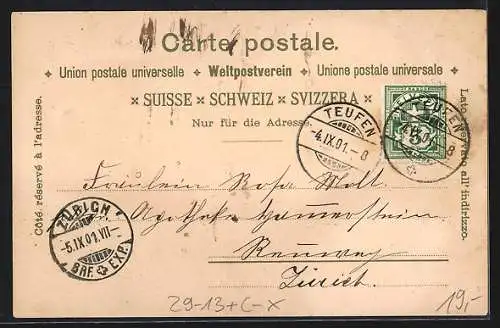 Carte postale.
Union postale universelle ✦ Weltpostverein ✦ Unione postale universale
SUISSE × SCHWEIZ × SVIZZERA
Nur für die Adresse.
Côté réservé à l'adresse.
Lato riservato all'indirizzo.
TEUFEN
-4.IX.01.-8
TEUFEN
5
Fräulein Rosa Molt
Apotheke
Rennweg
Zürich
ZÜRICH
-5.IX.01.VII-
BRF. EXP.
29-13+C-X
19,-